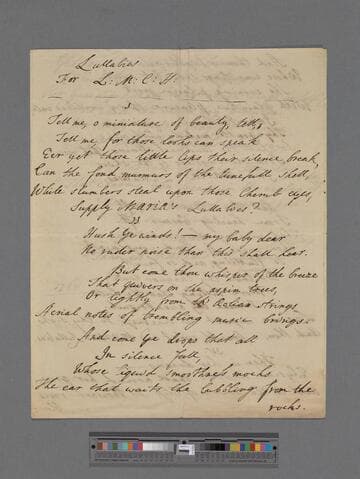 Lullabies
For L: M: C: H:
Tell me, o miniature of beauty, tell,
Tell me, for those looks can speak
E'er yet those little lips their silence break,
Can the fond murmurs of the tunefull shell,
While slumbers steal upon those Cherub eyes,
Supply Maria's Lullabies?
Hush Ye winds! — my baby dear
No ruder noise than this shall hear.
But come thou whisper of the breeze
That quivers on the aspin trees,
Or lightly from Eolian strings
Aerial notes of trembling music brings.
And come Ye drops that all
In silence fall,
Whose liquid smoothness mocks
The ear that waits the bubbling from the
rocks.